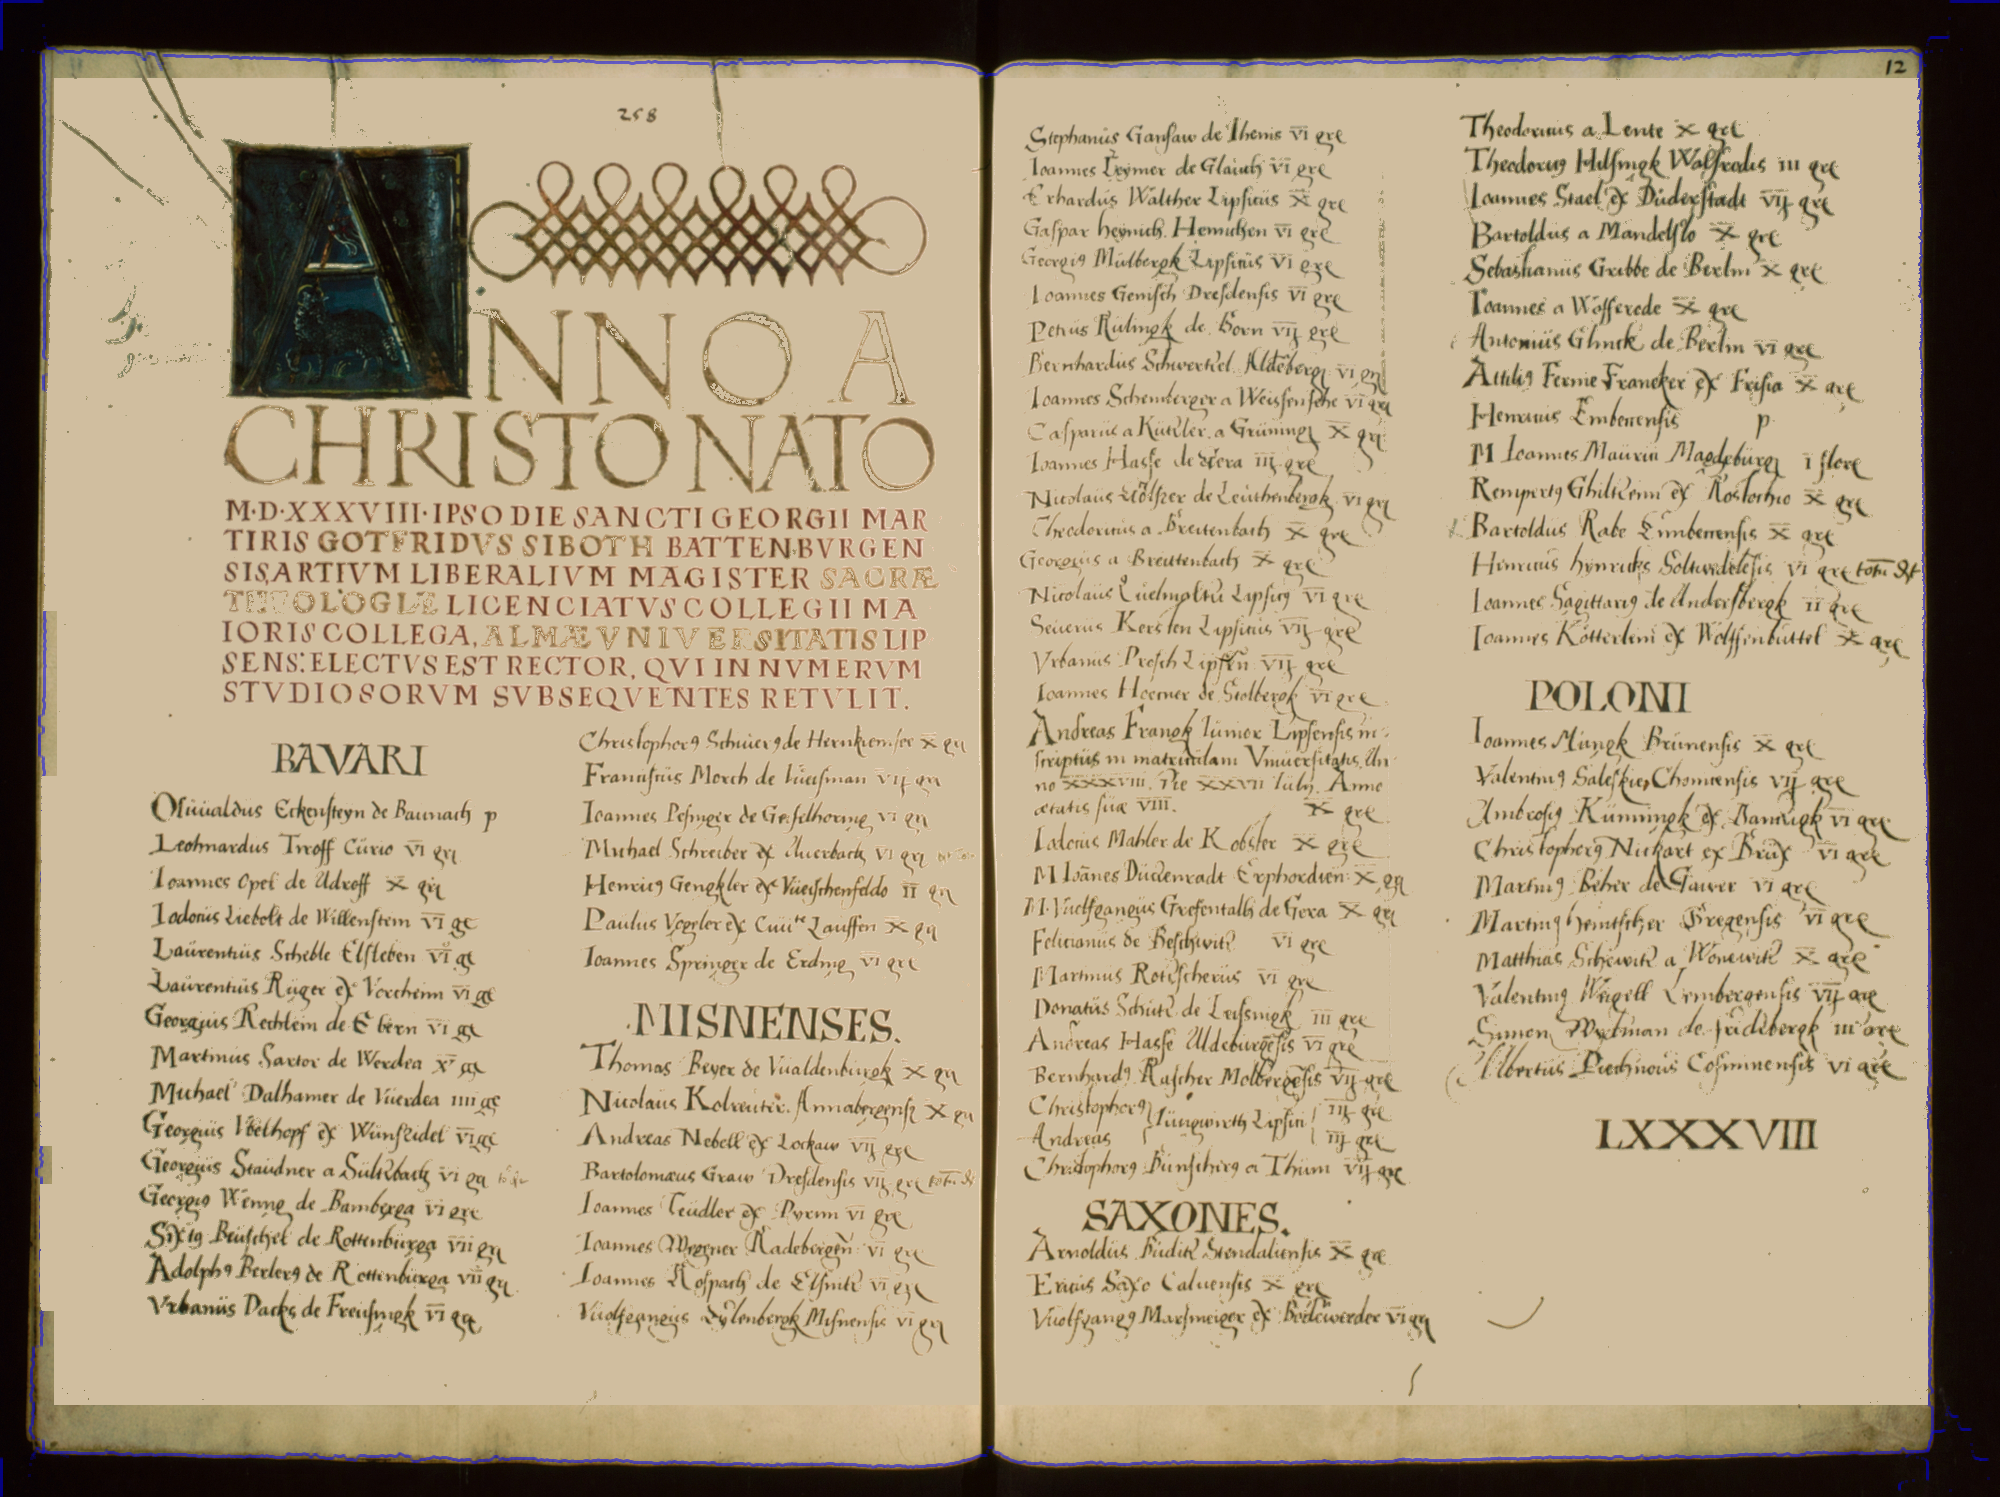 258
12
ANNO A
CHRISTO NATO
M·D·XXXVIII·IPSO DIE SANCTI GEORGII MAR
TIRIS GOTFRIDVS SIBOTH BATTENBVRGEN
SIS, ARTIVM LIBERALIVM MAGISTER SACRÆ
THEOLOGIÆ LICENCIATVS COLLEGII MA
IORIS COLLEGA, ALMÆ VNIVERSITATIS LIP
SENS: ELECTVS EST RECTOR, QVI IN NVMERVM
STVDIOSORVM SVBSEQVENTES RETVLIT.
BAVARI
Eckensteyn de Baunach p
Leohnardus Troff Curio VI gr
Ioannes Opel de Adroff X gr
Iodocus Liebolt de Willenstein VI gr
Laurentius Scheble Elsleben VI gr
Laurentius Rüger ex Vorcheim VI gr
Georgius Rechlein de Ebern VI gr
Martinus Sartor de Werdea X gr
Michael Dalhamer de Vuerdea IIII gr
Georgius Voelhopf ex Wunsidel VI gr
Georgius Staudner a Sultzbach VI gr
Georgius Wenng de Bamberga VI gre
Sixtus Beuschel de Rottenburga VII gr
Adolphus Berlerg de Rottenburga VII gr
Vrbanus Dacks de Freisingk VI gr
Christophorus Schuerg de X gr
Franciscus Morch de VII gr
Ioannes Pesinger de Geiselhoring VI gr
Michael Schreiber ex Auerbach VI gr
Henricus Gengkler ex Vueischenfeldo II gr
Paulus Vogeler ex Lauffen X gr
Ioannes Springer de Erding VI gre
MISNENSES.
Thomas Beyer de Vualdenburgk X gr
Nicolaus Kolreuter Annabergensis X gr
Andreas Nebell ex Lockaw VII gre
Bartolomæus Graw Dresdensis VII gre
Ioannes Teudler ex Pyrnn VI gre
Ioannes Wegener Radebergen: VI gre
Ioannes Rospach de Elsnitz VI gre
Vuolfgangus Eylenbergk Misnensis VI gr
Stephanus Gansaw de Ihenis VI gre
Ioannes Leymer de Glauch VI gre
Erhardus Walther Lipsicus X gre
Gaspar Heynich Henichen VI gre
Georgius Mülbergk Lipsicus VI gre
Ioannes Gensch Dresdensis VI gre
Petrus Rulingk de Born VII gre
Bernhardus Schwertzel Aldeberg VI gr
Ioannes Schemberger a Weissensehe VI gr
Casparus a Kutzler a Gruningen X gr
Ioannes Hasse de III gre
Nicolaus Wolszer de Leuchenbergk VI gr
Theodoricus a Breitenbach X gre
Georgius a Breittenbach X gre
Nicolaus Lipsicus VI gre
Seuerus Kersten Lipsicus VII gre
Vrbanus Presch Lipsen VII gre
Ioannes Hoerner de Stolbergk VI gre
Andreas Frangk Iunior Lipsensis in-
scriptus in matriculam Vniuersitatis, An-
no XXXVIII. Die XXVII Iulij, Anno
ætatis suæ VIII. X gre
Iodocus Mahler de Kobster X gre
M Ioānes Duderstadt Erphordien: X gr
M. Vuolfgangus Grefentalh de Gera X gr
Felicianus de Beschwitz VI gre
Martinus Rotischerus VI gre
Donatus Schutz de Leissingk III gre
Andreas Hasse Aldeburgēsis VI gre
Bernhardus Rascher Molbergēsis VII gre
Christophorus III gre
Iungwirth Lipsen
Andreas III gre
Christophorus Bünschirg a Thum VII gre
SAXONES.
Arnoldus Buditz Stendaliensis X gre
Ericus Saxo Caluensis X gre
Vuolfgangus Marsmeiger ex Bodēwerder VI gr
Theodoricus a Lente X gre
Theodorus Hilsingk Walsrodis III gre
Ioannes Stael ex Duderstadt VII gre
Bartoldus a Mandelslo X gre
Sebastianus Gribbe de Berlin X gre
Ioannes a Wofferode X gre
Antonius Glinck de Berlin VI gre
Attilius Ferme Francker ex Frisia X gre
Henricus Embeccensis p
M Ioannes Maurin Magdeburg I flore
Rempertus Ghiltzem ex Rostochio X gre
Bartoldus Rabe Eimbeccensis X gre
Henricus Hynricks Soltwedelēsis VI gre totū
Ioannes Sagittarius de Andersbergk II gre
Ioannes Kotterlein ex Wolffenbuttel X gre
POLONI
Ioannes Mungk Brunensis X gre
Valentinus Saleskien Choinicensis VII gre
Ambrosius Kunningk ex Dantzigk VI gre
Christophorus Nickart ex Brux VI gre
Martinus Beher de Gawer VI gre
Martinus Hentscher Bregensis VI gre
Matthias Schewitz a Wonewitz X gre
Valentinus Weigell Lembergensis VII gre
Simon Wydman de Fridebergk III gre
Albertus Piechnous Cosminensis VI gre
LXXXVIII